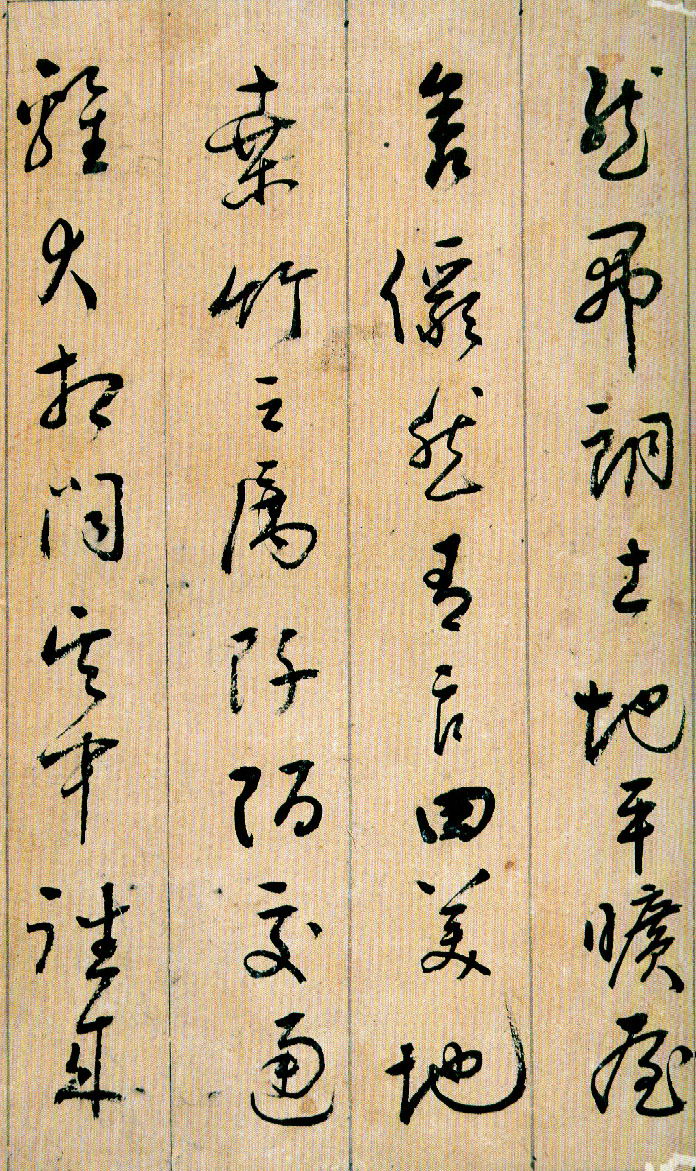 然開朗土地平曠屋
舍儼然有良田美地
桑竹之屬阡陌交通
雞犬相聞其中往來